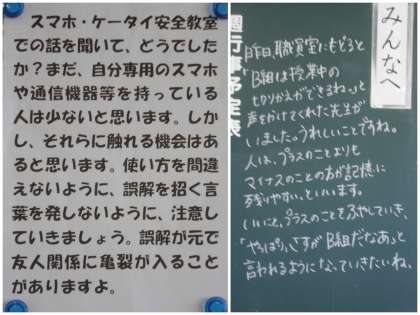 スマホ・ケータイ安全教室
での話を聞いて、どうでした
か？まだ、自分専用のスマホ
や通信機器等を持っている
人は少ないと思います。しか
し、それらに触れる機会はあ
ると思います。使い方を間違
えないように、誤解を招く言
葉を発しないように、注意し
ていきましょう。誤解が元で
友人関係に亀裂が入ること
がありますよ。
みんなへ
昨日、職員室にもどると
「B組は授業中の
切りかえができるねっ」と
声をかけてくれた先生が
いました。うれしいことですね。
人は、プラスのことよりも
マイナスのことの方が記憶に
残りやすい、といいます。
いいこと、プラスのことをふやしていき、
「やっぱり、さすがB組だなあ。」と
言われるようになっていきたいね。